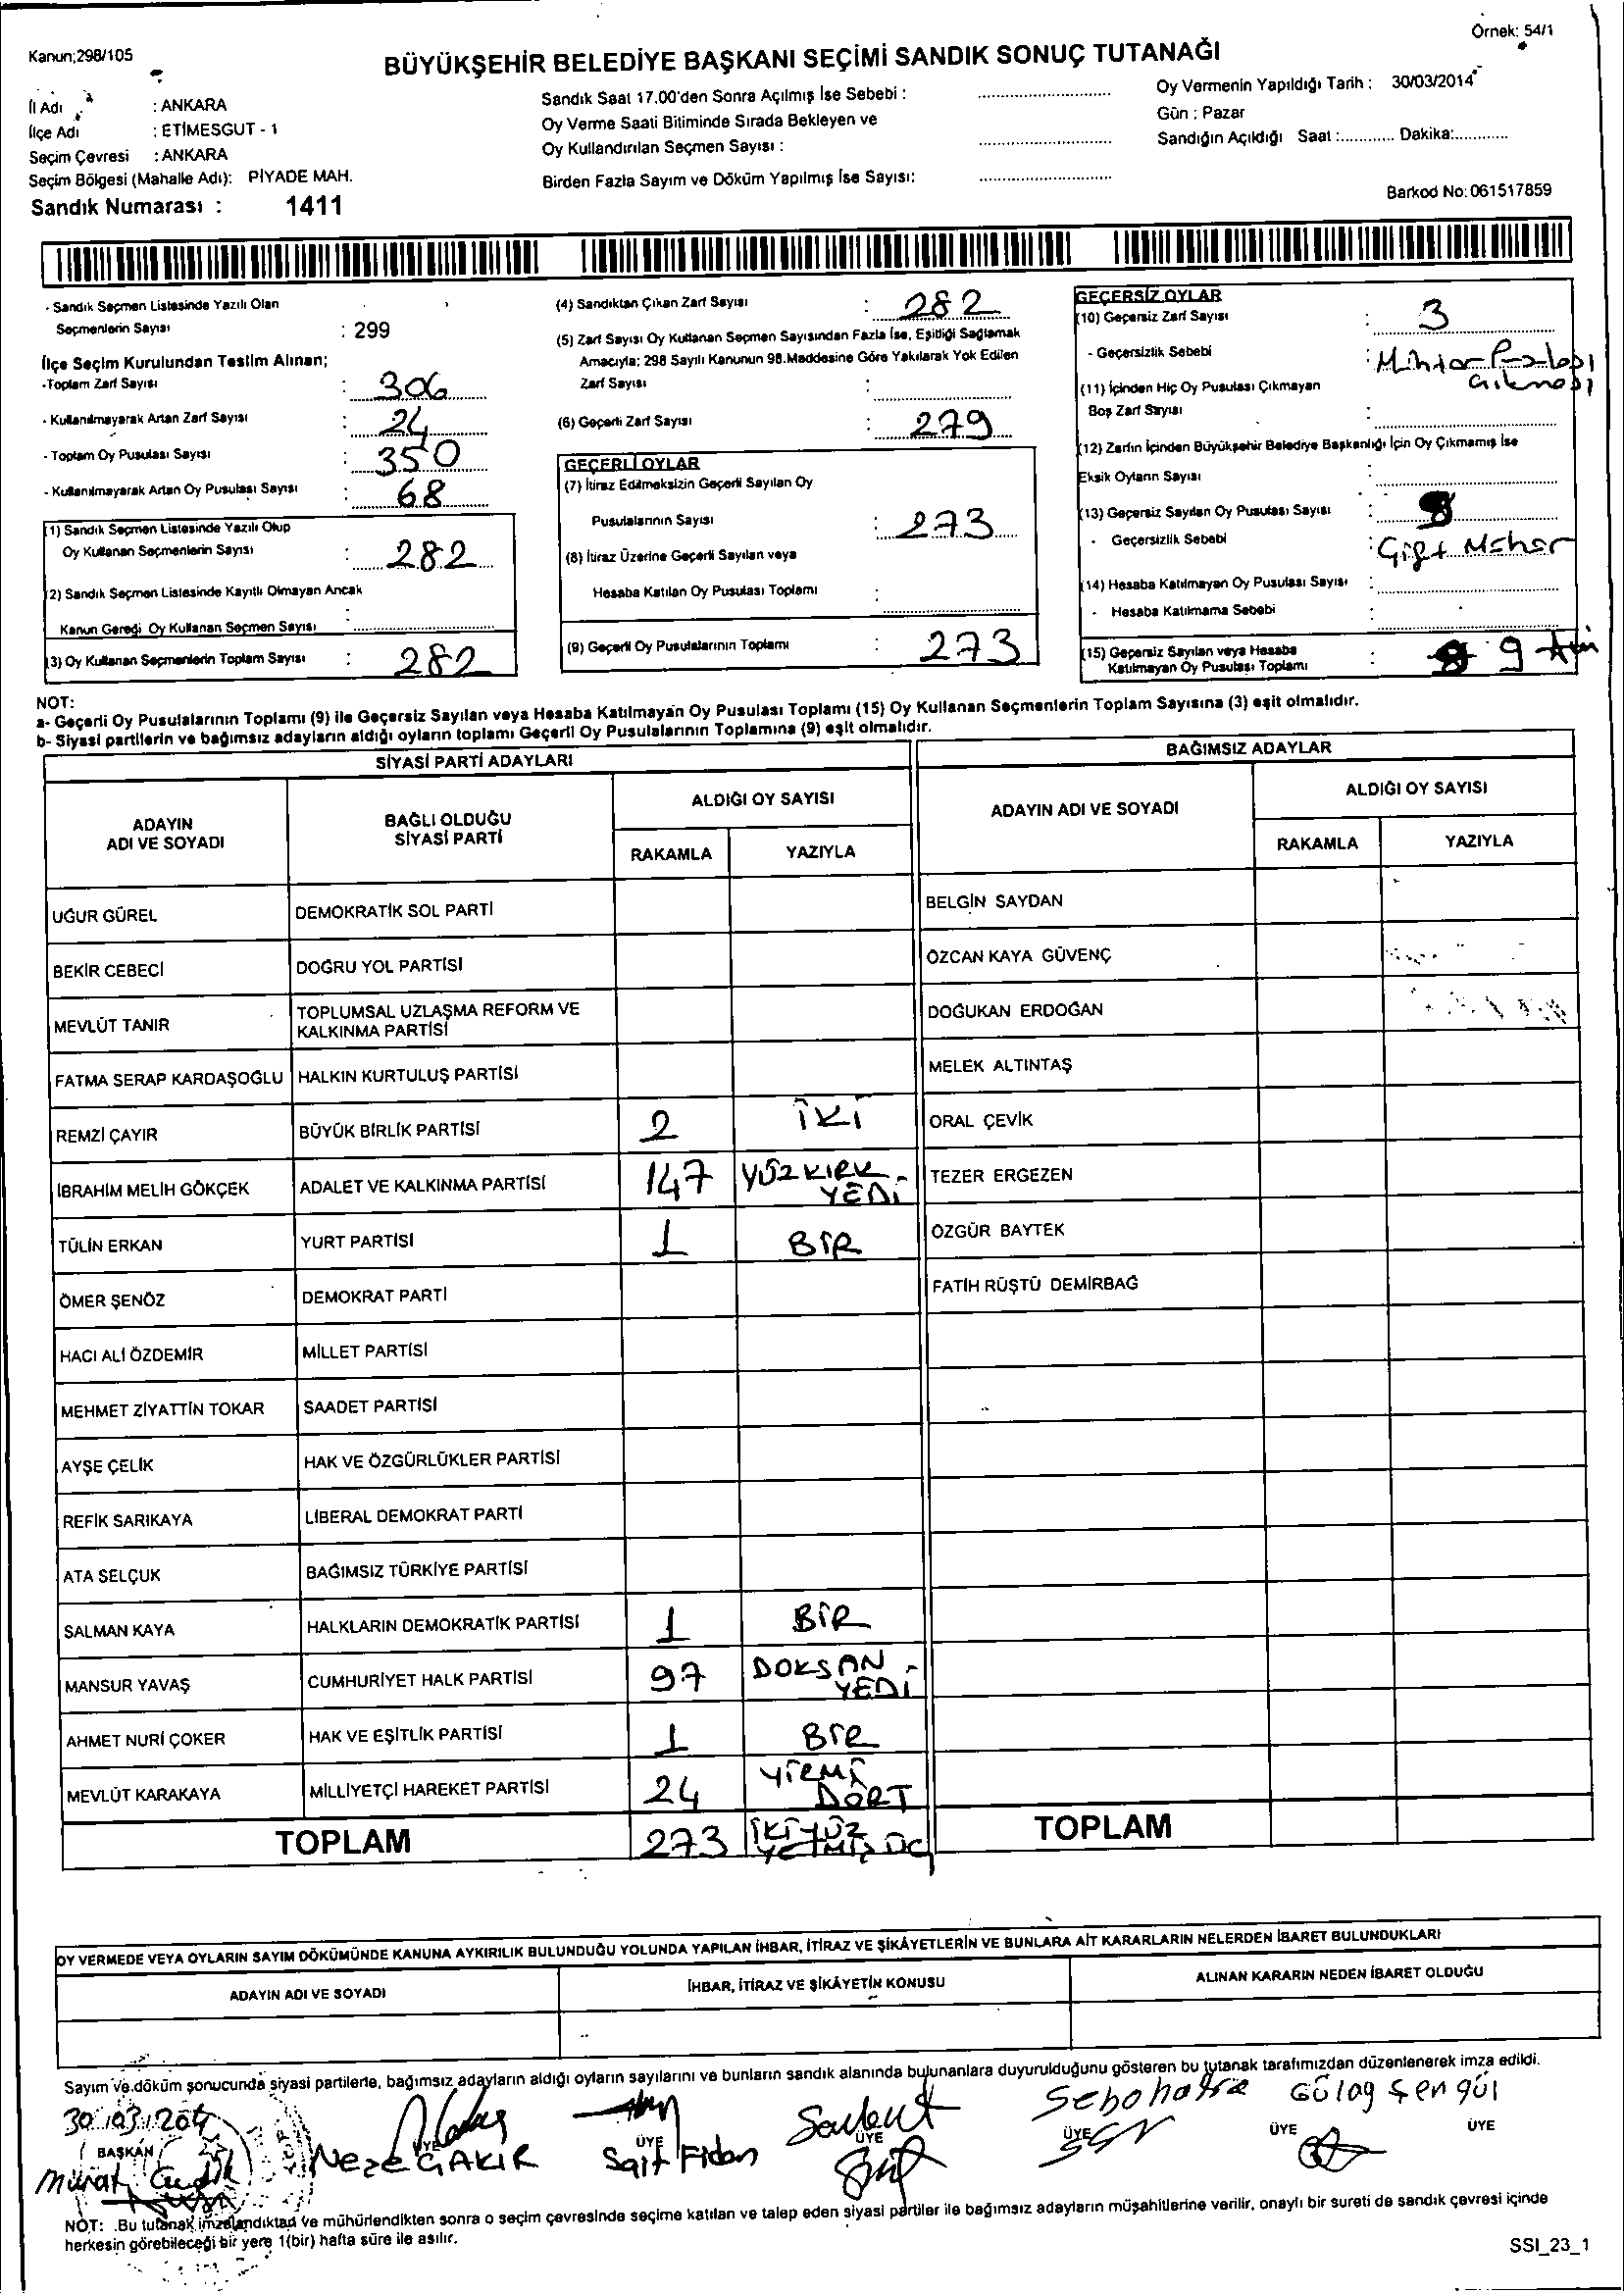 Örnek: 54/1
Kanun;298/105
BÜYÜKŞEHİR BELEDİYE BAŞKANI SEÇİMİ SANDIK SONUÇ TUTANAĞI
İl Adı : ANKARA
İlçe Adı : ETİMESGUT - 1
Seçim Çevresi : ANKARA
Seçim Bölgesi (Mahalle Adı): PİYADE MAH.
Sandık Numarası : 1411
Sandık Saat 17.00'den Sonra Açılmış İse Sebebi :
Oy Verme Saati Bitiminde Sırada Bekleyen ve
Oy Kullandırılan Seçmen Sayısı :
Birden Fazla Sayım ve Döküm Yapılmış İse Sayısı:
Oy Vermenin Yapıldığı Tarih : 30/03/2014
Gün : Pazar
Sandığın Açıldığı Saat :............ Dakika:............
Barkod No: 061517859
- Sandık Seçmen Listesinde Yazılı Olan
Seçmenlerin Sayısı : 299
İlçe Seçim Kurulundan Teslim Alınan;
-Toplam Zarf Sayısı : 306
- Kullanılmayarak Artan Zarf Sayısı : 24
- Toplam Oy Pusulası Sayısı : 350
- Kullanılmayarak Artan Oy Pusulası Sayısı : 68
(1) Sandık Seçmen Listesinde Yazılı Olup
Oy Kullanan Seçmenlerin Sayısı : 282
(2) Sandık Seçmen Listesinde Kayıtlı Olmayan Ancak
Kanun Gereği Oy Kullanan Seçmen Sayısı :
(3) Oy Kullanan Seçmenlerin Toplam Sayısı : 282
(4) Sandıktan Çıkan Zarf Sayısı : 282
(5) Zarf Sayısı Oy Kullanan Seçmen Sayısından Fazla İse, Eşitliği Sağlamak
Amacıyla; 298 Sayılı Kanunun 98.Maddesine Göre Yakılarak Yok Edilen
Zarf Sayısı :
(6) Geçerli Zarf Sayısı : 279
GEÇERLİ OYLAR
(7) İtiraz Edilmeksizin Geçerli Sayılan Oy
Pusulalarının Sayısı : 273
(8) İtiraz Üzerine Geçerli Sayılan veya
Hesaba Katılan Oy Pusulası Toplamı :
(9) Geçerli Oy Pusulalarının Toplamı : 273
GEÇERSİZ OYLAR
(10) Geçersiz Zarf Sayısı : 3
- Geçersizlik Sebebi :
(11) İçinden Hiç Oy Pusulası Çıkmayan
Boş Zarf Sayısı :
(12) Zarfın İçinden Büyükşehir Belediye Başkanlığı İçin Oy Çıkmamış İse
Eksik Oyların Sayısı :
(13) Geçersiz Sayılan Oy Pusulası Sayısı :
- Geçersizlik Sebebi : Çift Mühür
(14) Hesaba Katılmayan Oy Pusulası Sayısı :
- Hesaba Katılmama Sebebi :
(15) Geçersiz Sayılan veya Hesaba
Katılmayan Oy Pusulası Toplamı : 9
NOT:
a- Geçerli Oy Pusulalarının Toplamı (9) ile Geçersiz Sayılan veya Hesaba Katılmayan Oy Pusulası Toplamı (15) Oy Kullanan Seçmenlerin Toplam Sayısına (3) eşit olmalıdır.
b- Siyasi partilerin ve bağımsız adayların aldığı oyların toplamı Geçerli Oy Pusulalarının Toplamına (9) eşit olmalıdır.
SİYASİ PARTİ ADAYLARI
ADAYIN ADI VE SOYADI
BAĞLI OLDUĞU SİYASİ PARTİ
ALDIĞI OY SAYISI
RAKAMLA YAZIYLA
UĞUR GÜREL DEMOKRATİK SOL PARTİ
BEKİR CEBECİ DOĞRU YOL PARTİSİ
MEVLÜT TANIR TOPLUMSAL UZLAŞMA REFORM VE KALKINMA PARTİSİ
FATMA SERAP KARDAŞOĞLU HALKIN KURTULUŞ PARTİSİ
REMZİ ÇAYIR BÜYÜK BİRLİK PARTİSİ 2 İKİ
İBRAHİM MELİH GÖKÇEK ADALET VE KALKINMA PARTİSİ 147 YÜZ KIRK - YEDİ
TÜLİN ERKAN YURT PARTİSİ 1 BİR
ÖMER ŞENÖZ DEMOKRAT PARTİ
HACI ALİ ÖZDEMİR MİLLET PARTİSİ
MEHMET ZİYATTİN TOKAR SAADET PARTİSİ
AYŞE ÇELİK HAK VE ÖZGÜRLÜKLER PARTİSİ
REFİK SARIKAYA LİBERAL DEMOKRAT PARTİ
ATA SELÇUK BAĞIMSIZ TÜRKİYE PARTİSİ
SALMAN KAYA HALKLARIN DEMOKRATİK PARTİSİ 1 BİR
MANSUR YAVAŞ CUMHURİYET HALK PARTİSİ 97 DOKSAN - YEDİ
AHMET NURİ ÇOKER HAK VE EŞİTLİK PARTİSİ 1 BİR
MEVLÜT KARAKAYA MİLLİYETÇİ HAREKET PARTİSİ 24 YİRMİ DÖRT
TOPLAM 273 İKİ YÜZ YETMİŞ ÜÇ
BAĞIMSIZ ADAYLAR
ADAYIN ADI VE SOYADI
ALDIĞI OY SAYISI
RAKAMLA YAZIYLA
BELGİN SAYDAN
ÖZCAN KAYA GÜVENÇ
DOĞUKAN ERDOĞAN
MELEK ALTINTAŞ
ORAL ÇEVİK
TEZER ERGEZEN
ÖZGÜR BAYTEK
FATİH RÜŞTÜ DEMİRBAĞ
TOPLAM
OY VERMEDE VEYA OYLARIN SAYIM DÖKÜMÜNDE KANUNA AYKIRILIK BULUNDUĞU YOLUNDA YAPILAN İHBAR, İTİRAZ VE ŞİKÂYETLERİN VE BUNLARA AİT KARARLARIN NELERDEN İBARET BULUNDUKLARI
ADAYIN ADI VE SOYADI
İHBAR, İTİRAZ VE ŞİKÂYETİN KONUSU
ALINAN KARARIN NEDEN İBARET OLDUĞU
Sayım ve döküm sonucunda siyasi partilerle, bağımsız adayların aldığı oyların sayılarını ve bunların sandık alanında bulunanlara duyurulduğunu gösteren bu tutanak tarafımızdan düzenlenerek imza edildi.
30/03/2014
BAŞKAN ÜYE ÜYE ÜYE ÜYE ÜYE ÜYE
Murat
Sait Fidan
Gülay Şengül
NOT: Bu tutanak imzalandıktan ve mühürlendikten sonra o seçim çevresinde seçime katılan ve talep eden siyasi partiler ile bağımsız adayların müşahitlerine verilir, onaylı bir sureti de sandık çevresi içinde
herkesin görebileceği bir yere 1(bir) hafta süre ile asılır.
SSI_23_1